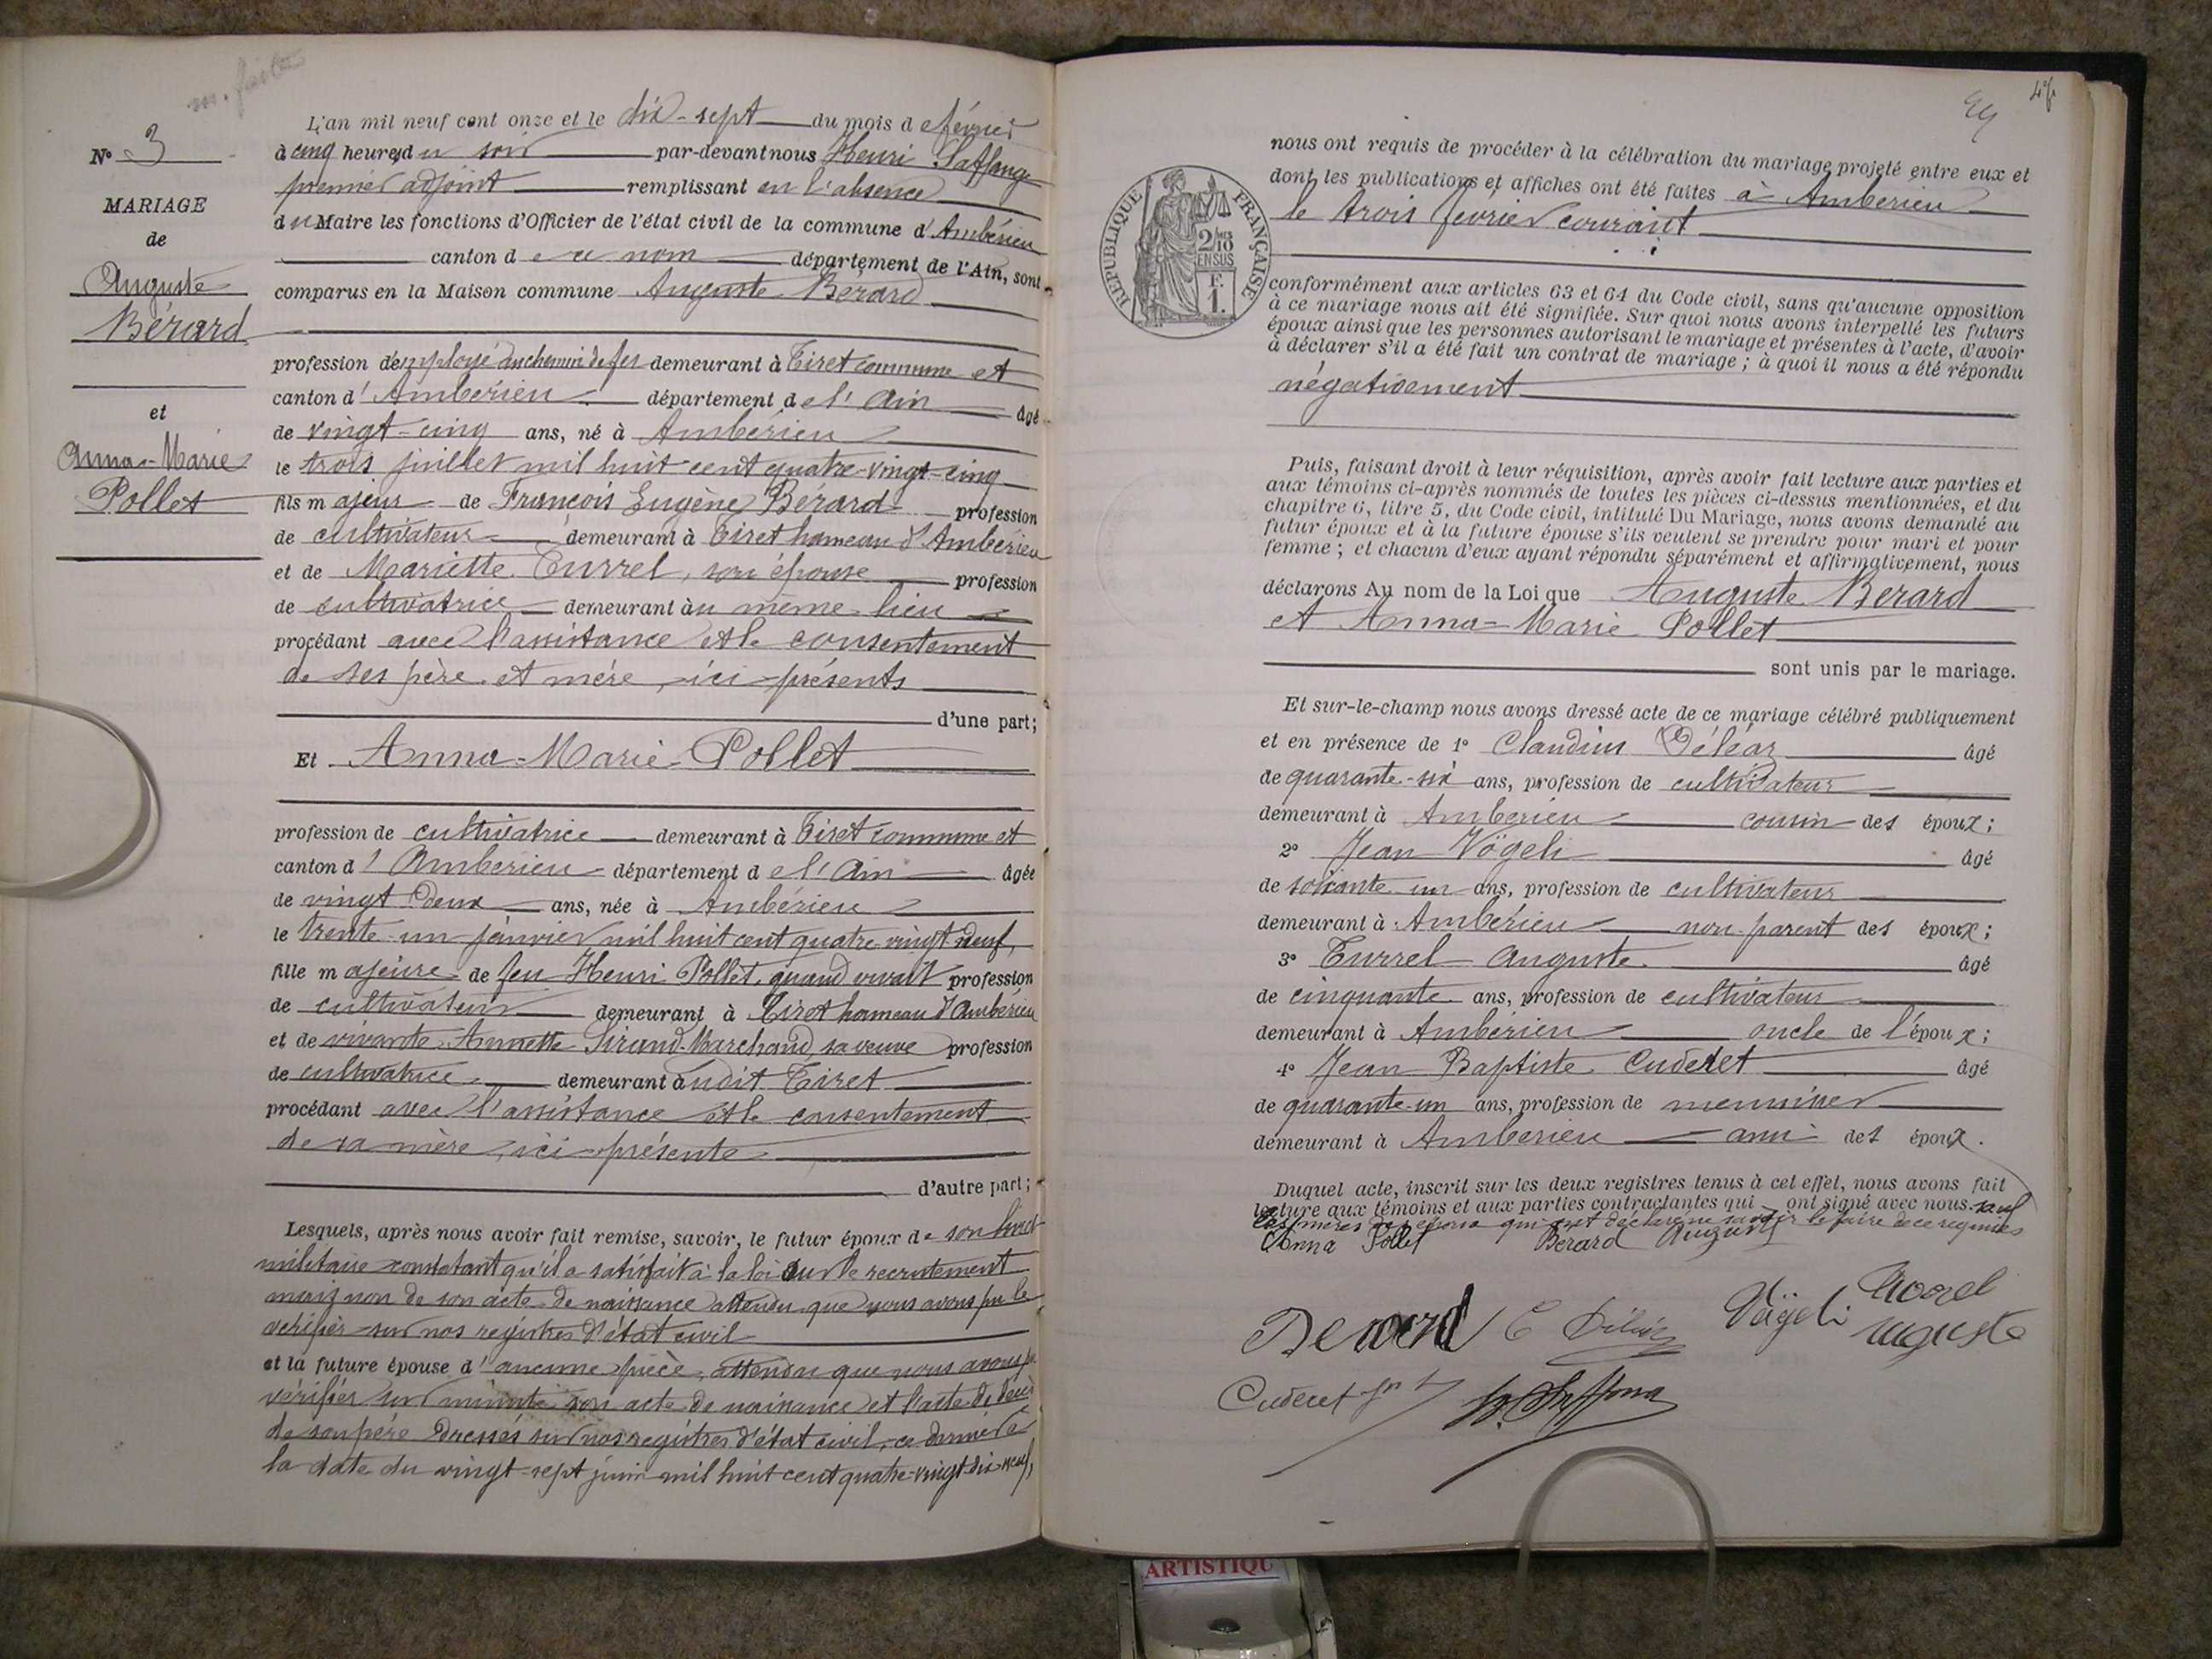 N° 3
MARIAGE
de
Auguste
Bérard
et
Anna-Marie
Pollet
L'an mil neuf cent onze et le dix-sept du mois de février
à cinq heures du soir par-devant nous Henri Saffange
premier adjoint remplissant en l'absence
du Maire les fonctions d'Officier de l'état civil de la commune d'Ambérieu
canton de ce nom département de l'Ain, sont
comparus en la Maison commune Auguste Bérard
profession d'employé du chemin de fer demeurant à Tiret commune et
canton d'Ambérieu département de l'Ain âgé
de vingt-cinq ans, né à Ambérieu
le trois juillet mil huit cent quatre-vingt-cinq
fils majeur de François Eugène Bérard profession
de cultivateur demeurant à Tiret hameau d'Ambérieu
et de Mariette Turrel, son épouse profession
de cultivatrice demeurant au même lieu
procédant avec l'assistance et le consentement
de ses père et mère, ici présents
d'une part;
Et Anna-Marie Pollet
profession de cultivatrice demeurant à Tiret commune et
canton d'Ambérieu département de l'Ain âgée
de vingt deux ans, née à Ambérieu
le trente-un janvier mil huit cent quatre vingt neuf,
fille majeure de feu Henri Pollet, quand vivait profession
de cultivateur demeurant à Tiret hameau d'Ambérieu
et de vivante Annette Sirand-Marchand, sa veuve profession
de cultivatrice demeurant audit Tiret
procédant avec l'assistance et le consentement
de sa mère, ici présente
d'autre part;
Lesquels, après nous avoir fait remise, savoir, le futur époux de son livret
militaire constatant qu'il a satisfait à la loi sur le recrutement
mais non de son acte de naissance attendu que nous avons pu le
vérifier sur nos registres d'état civil
et la future épouse d'aucune pièce, attendu que nous avons pu
vérifier sur minute son acte de naissance et l'acte de décès
de son père dressés sur nos registres d'état civil, ce dernier à
la date du vingt-sept juin mil huit cent quatre-vingt-dix-neuf,
RÉPUBLIQUE FRANÇAISE
2/10 EN SUS
F.
1.
nous ont requis de procéder à la célébration du mariage projeté entre eux et
dont les publications et affiches ont été faites à Ambérieu
le trois février courant
conformément aux articles 63 et 64 du Code civil, sans qu'aucune opposition
à ce mariage nous ait été signifiée. Sur quoi nous avons interpellé les futurs
époux ainsi que les personnes autorisant le mariage et présentes à l'acte, d'avoir
à déclarer s'il a été fait un contrat de mariage; à quoi il nous a été répondu
négativement
Puis, faisant droit à leur réquisition, après avoir fait lecture aux parties et
aux témoins ci-après nommés de toutes les pièces ci-dessus mentionnées, et du
chapitre 6, titre 5, du Code civil, intitulé Du Mariage, nous avons demandé au
futur époux et à la future épouse s'ils veulent se prendre pour mari et pour
femme; et chacun d'eux ayant répondu séparément et affirmativement, nous
déclarons Au nom de la Loi que Auguste Bérard
et Anna-Marie Pollet
sont unis par le mariage.
Et sur-le-champ nous avons dressé acte de ce mariage célébré publiquement
et en présence de 1° Claudius Déléaz âgé
de quarante-six ans, profession de cultivateur
demeurant à Ambérieu cousin des époux;
2° Jean Vögeli âgé
de soixante-un ans, profession de cultivateur
demeurant à Ambérieu non parent des époux;
3° Turrel Auguste âgé
de cinquante ans, profession de cultivateur
demeurant à Ambérieu oncle de l'époux;
4° Jean Baptiste Cuderet âgé
de quarante-un ans, profession de menuisier
demeurant à Ambérieu ami des époux.
Duquel acte, inscrit sur les deux registres tenus à cet effet, nous avons fait
lecture aux témoins et aux parties contractantes qui ont signé avec nous sauf
les mères des époux qui ont déclaré ne savoir le faire de ce requises
Anna Pollet Berard Auguste
Berard C Déléaz Vögeli
Auguste
Cuderet
ARTISTIQU